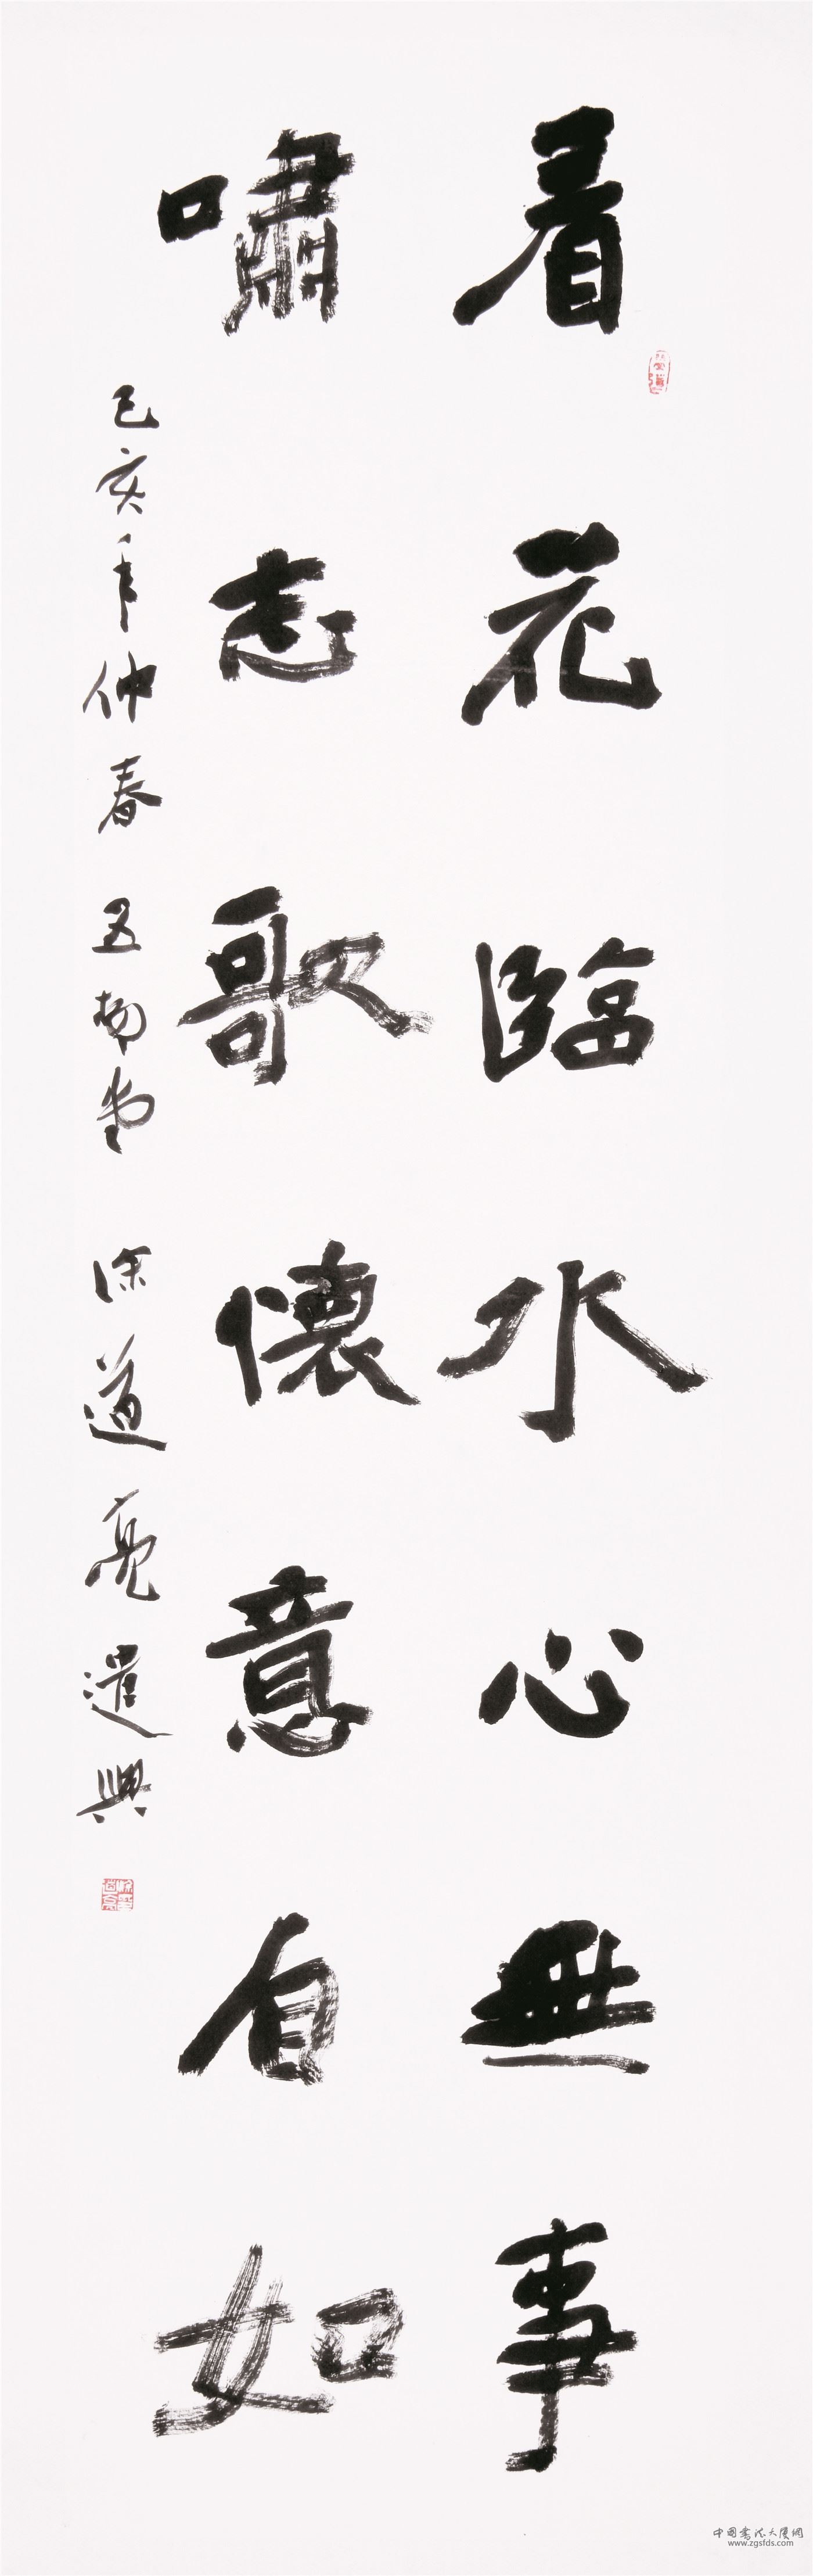 看花臨水心無事
嘯志歌懷意自如
己亥年仲春五柳堂涂道亮遣興
中国書法大廈網
www.zgsfds.com